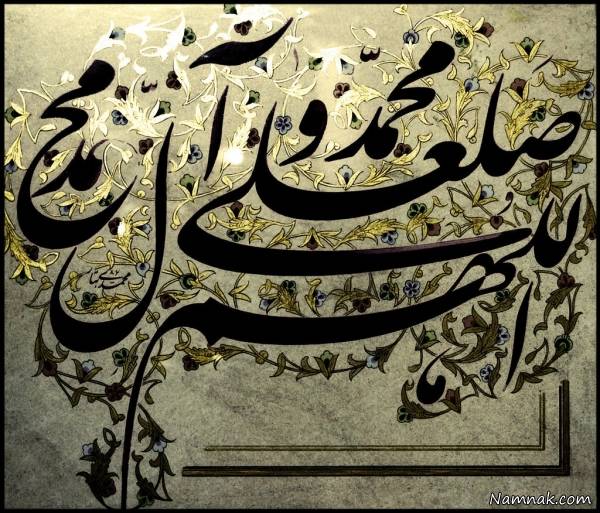 اللهم
صل علی محمد و آل محمد
Namnak.com